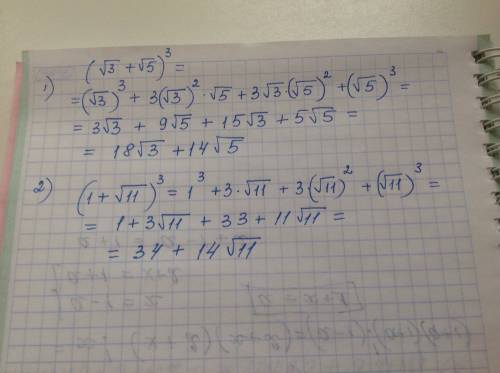 1) (√3 + √5)³ =
= (√3)³ + 3(√3)² · √5 + 3√3 · (√5)² + (√5)³ =
= 3√3 + 9√5 + 15√3 + 5√5 =
= 18√3 + 14√5
2) (1 + √11)³ = 1³ + 3 · √11 + 3(√11)² + (√11)³ =
= 1 + 3√11 + 33 + 11√11 =
= 34 + 14√11